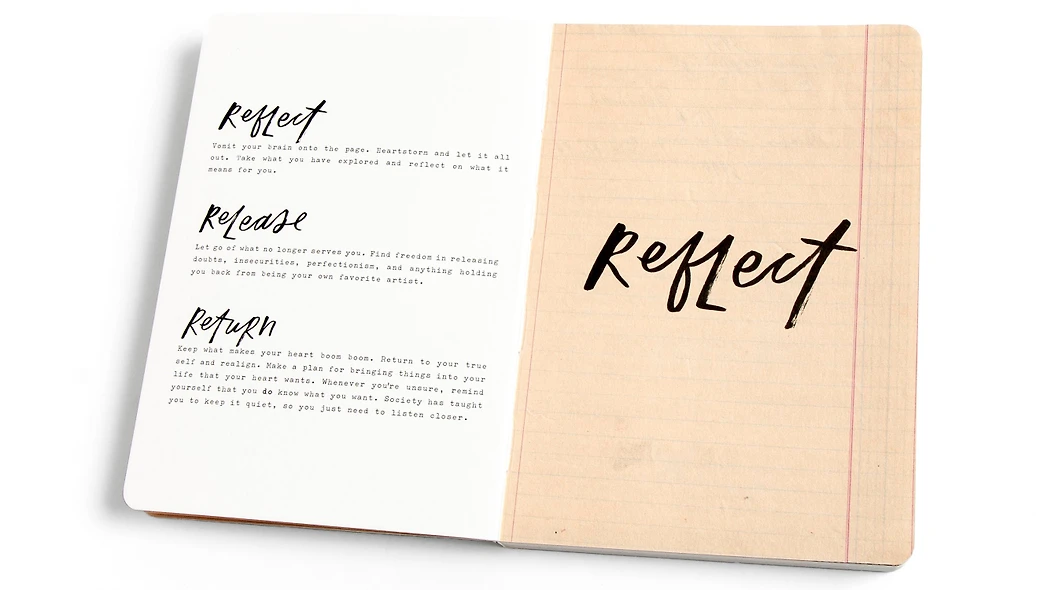 Reflect
Vomit your brain onto the page. Heartstorm and let it all
out. Take what you have explored and reflect on what it
means for you.
Release
Let go of what no longer serves you. Find freedom in releasing
doubts, insecurities, perfectionism, and anything holding
you back from being your own favorite artist.
Return
Keep what makes your heart boom boom. Return to your true
self and realign. Make a plan for bringing things into your
life that your heart wants. Whenever you're unsure, remind
yourself that you do know what you want. Society has taught
you to keep it quiet, so you just need to listen closer.
Reflect